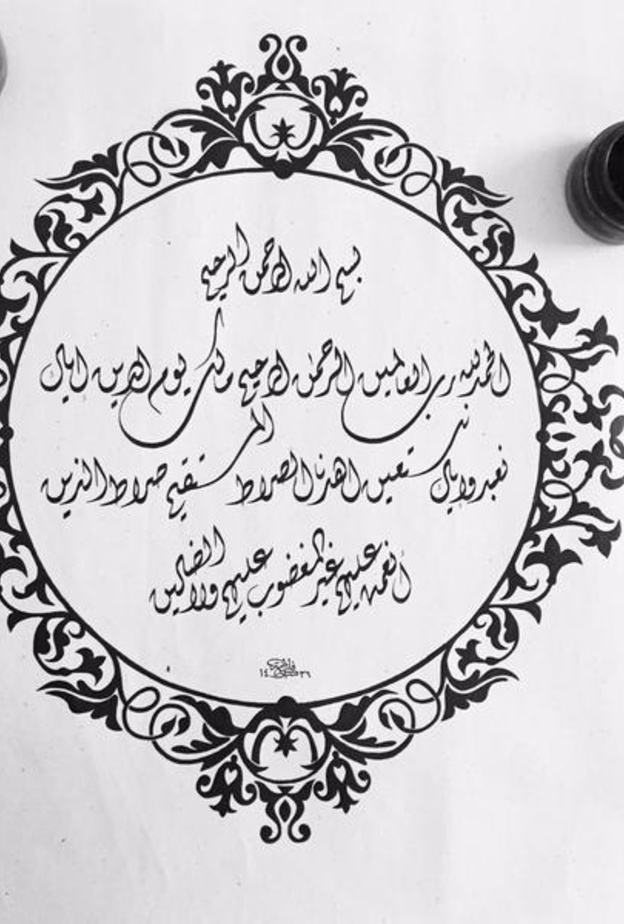 بسم الله الرحمن الرحيم
الحمد لله رب العالمين الرحمن الرحيم مالك يوم الدين اياك
نعبد واياك نستعين اهدنا الصراط المستقيم صراط الذين
أنعمت عليهم غير المغضوب عليهم ولا الضالين